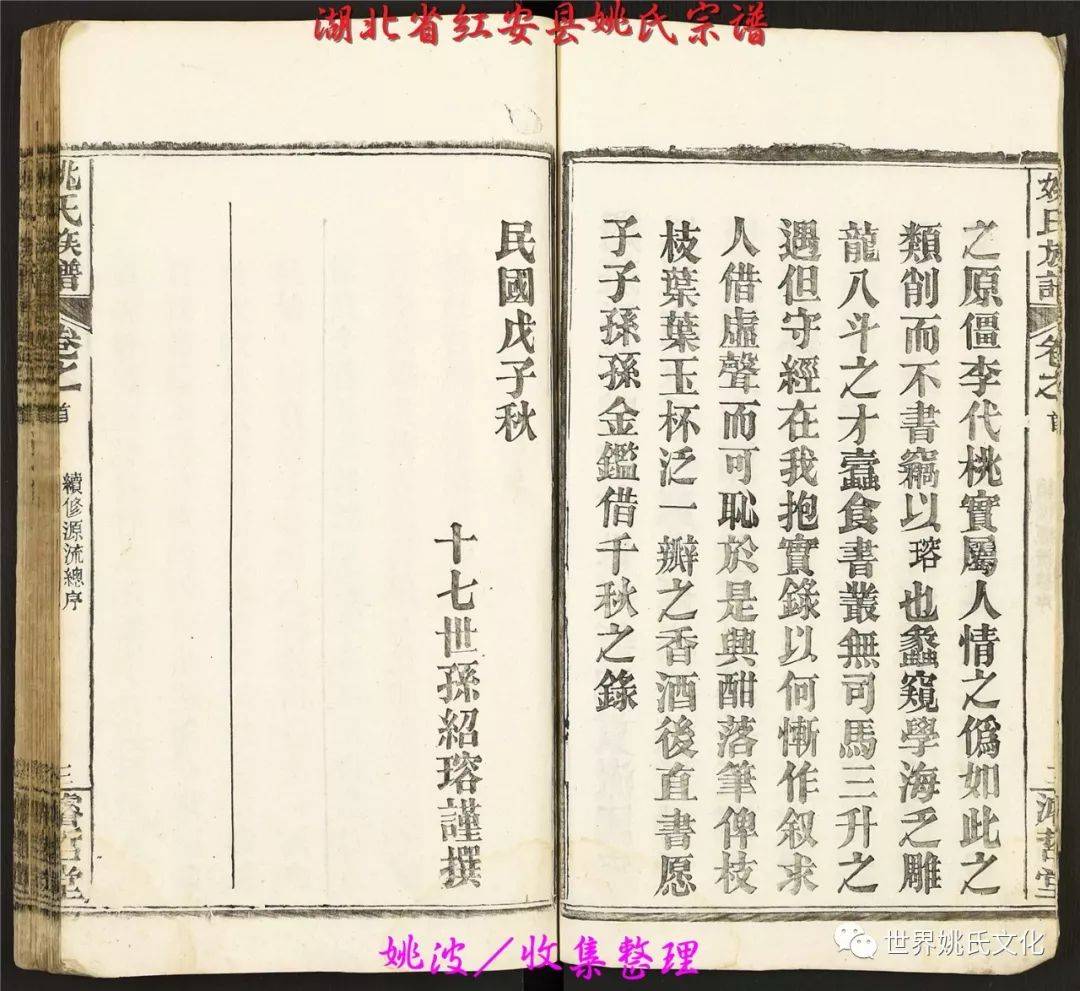 湖北省红安县姚氏宗谱
姚氏族譜
卷之
首
之原僵李代桃實屬人情之僞如此之
類削而不書竊以瑢也蠡窺學海乏雕
龍八斗之才蠹食書叢無司馬三升之
遇但守經在我抱實錄以何慚作叙求
人借虛聲而可恥於是興酣落筆俾枝
枝葉葉玉杯泛一瓣之香酒後直書愿
子子孫孫金鑑借千秋之錄
民國戊子秋
十七世孫紹瑢謹撰
姚氏族譜
卷之
首
續修源流總序
三
堂
姚波／收集整理
世界姚氏文化